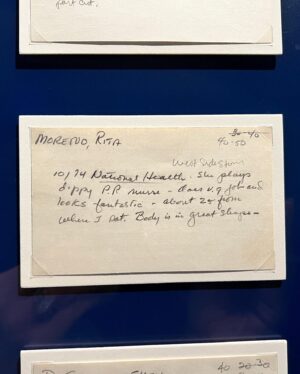 part cut.
MORENO, RITA
30-40
40-50
West Side Story
10/74 National Health. She plays
dippy P.P. nurse - does v.g. job and
looks fantastic - about 20 from
where I sat. Body is in great shape -
40 20-30